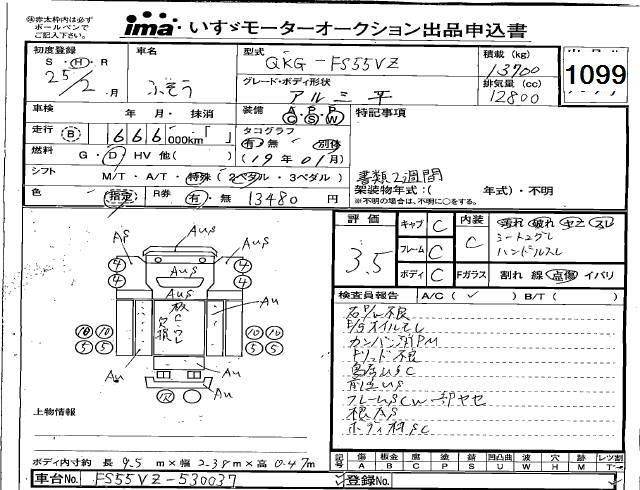 ㊟赤太枠内は必ず
ボールペンで
ご記入下さい。
ima いすゞモーターオークション出品申込書
初度登録
S・H・R
25/2 月
車名
ふそう
型式
QKG-FS55VZ
グレード・ボディ形状
アルミ平
積載 (kg)
13700
排気量 (cc)
12800
1099
車検
年・月・抹消
装備
A/C P/S P/W
特記事項
走行 B 666 000km「 」
タコグラフ
有・無 別体
(19年01月)
燃料
G・D・HV 他( )
シフト
M/T・A/T・特殊(2ペダル・3ペダル)
書類2週間
架装物年式:( 年式)・不明
※不明の場合は、不明に○をする。
色
指定
R券
有・無
13480 円
評価
3.5
キャブ C
フレーム C
ボディ C
内装
C
汚れ 破れ ヤニ スレ
シートコゲ
ハンドルスレ
Fガラス 割れ 線 点傷 イバリ
検査員報告 A/C(✓) B/T( )
カンバン灯
フレームSCW一部ヤセ
AP
AUS
AUS
4 4
4 4
AUS
AUS
AU
10 10
5 5
10 10
5 5
AU
AU
AU
12
上物情報
ボディ内寸約 長 9.5 m×幅 2.38 m×高 0.47 m
車台No. FS55VZ-530037
記号
傷 板金 腐 塗 錆 凹凸曲 波 穴 跡 レツ割
A B C P S U W H M T
登録No.